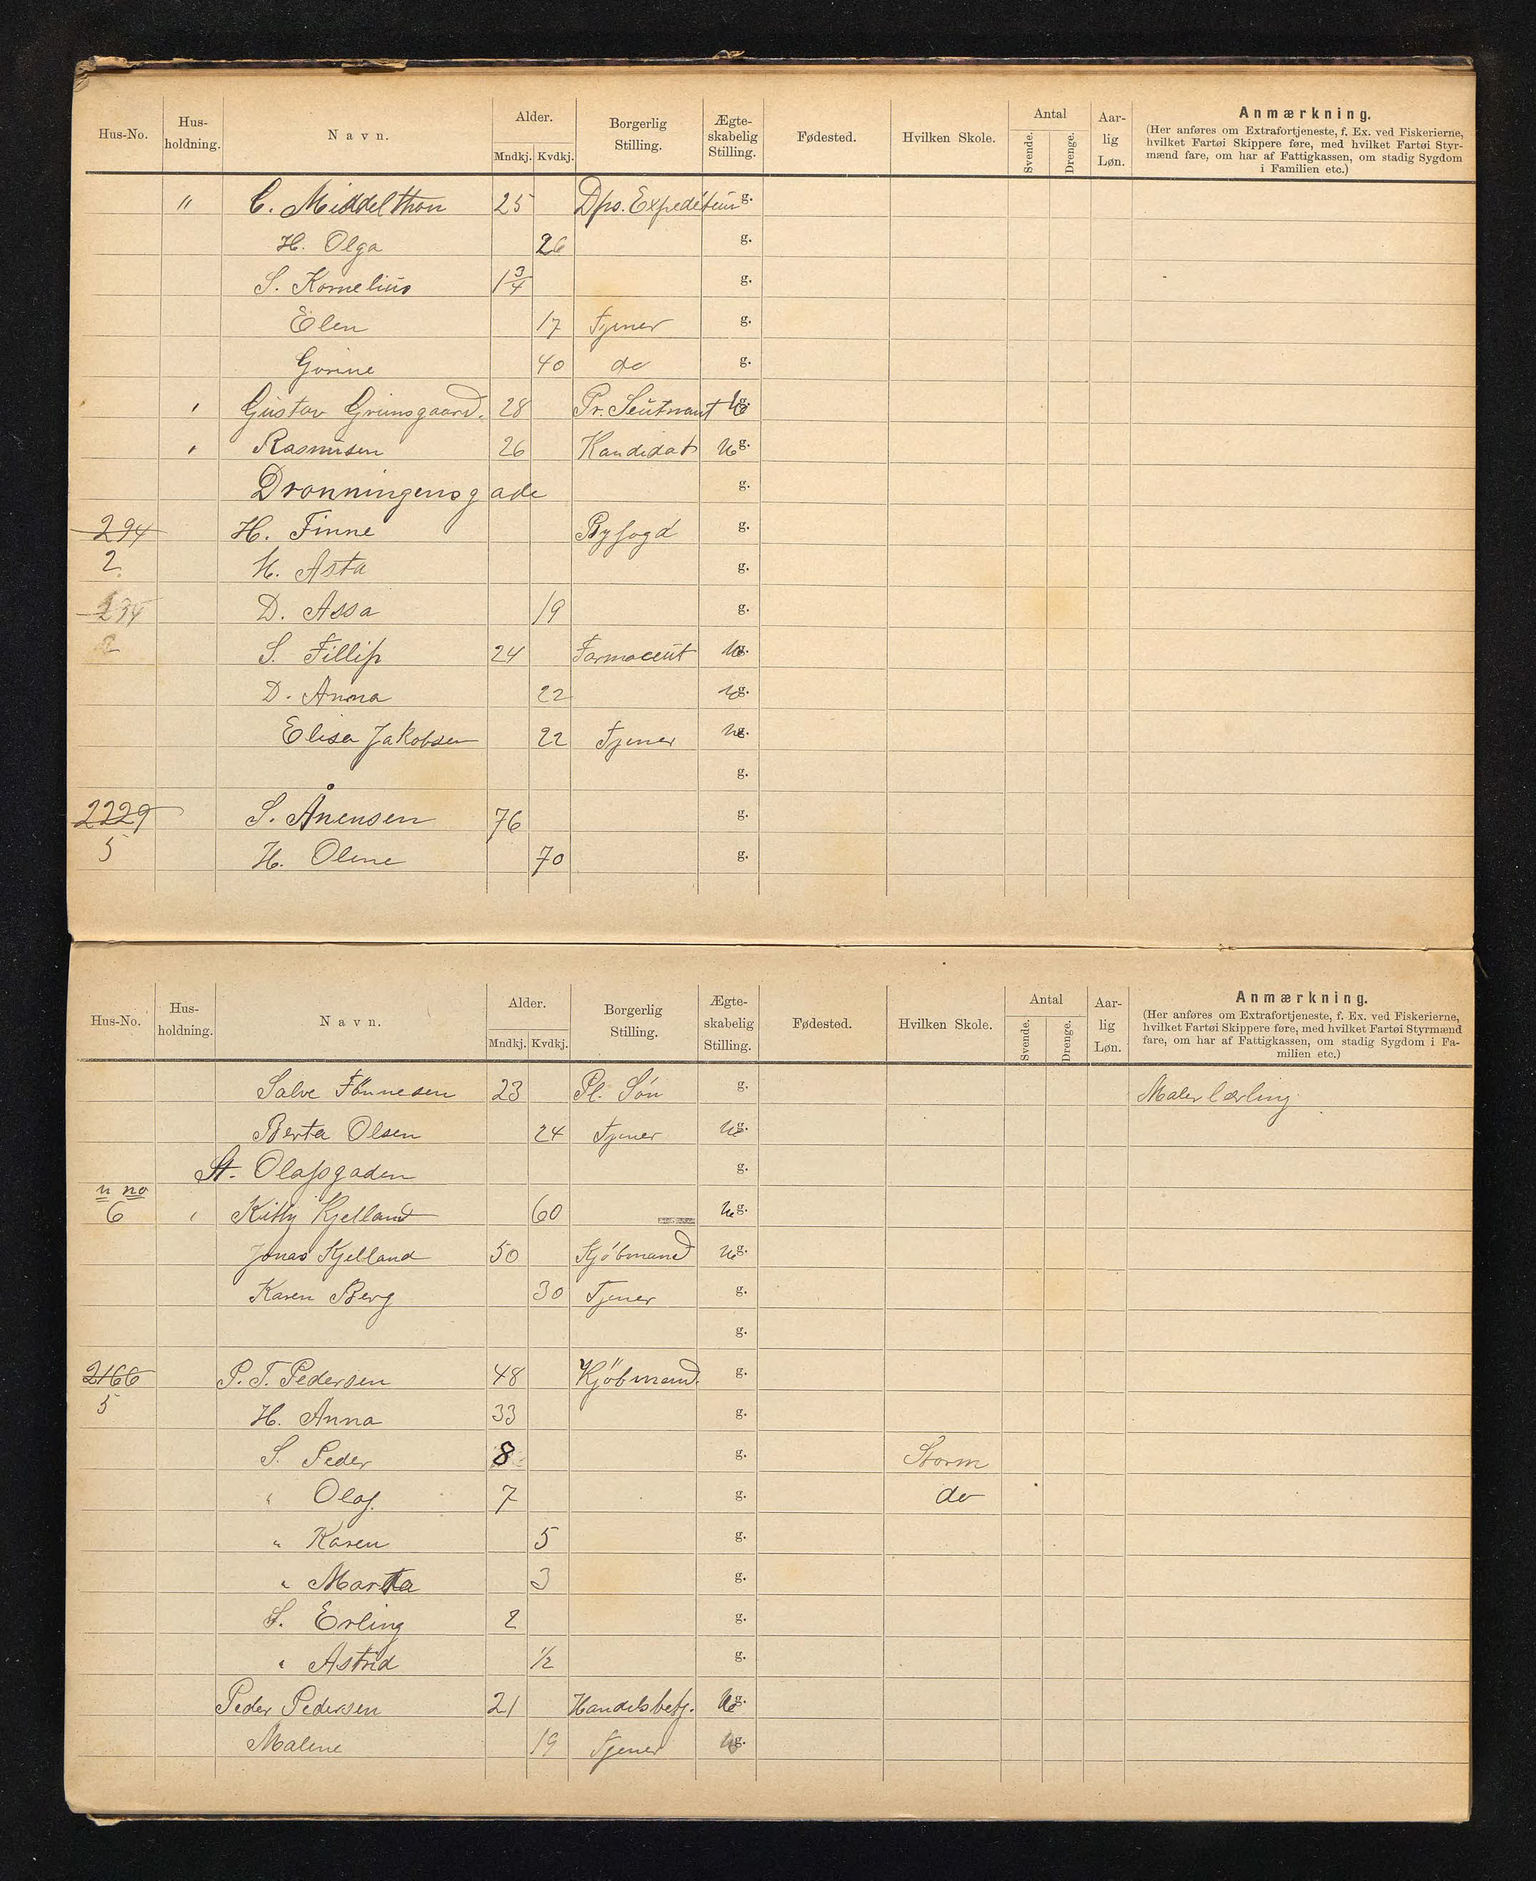 Hus-No. Hus-holdning. Navn. Alder. Mndkj. Kvdkj. Borgerlig Stilling. Ægte-skabelig Stilling. Fødested. Hvilken Skole. Antal Svende. Drenge. Aar-lig Løn. Anmærkning.
(Her anføres om Extrafortjeneste, f. Ex. ved Fiskerierne,
hvilket Fartøi Skippere føre, med hvilket Fartøi Styr-
mænd fare, om har af Fattigkassen, om stadig Sygdom
i Familien etc.)
" C. Middelthon 25 Dps. Expediteur g.
H. Olga 26 g.
S. Kornelius 1 3/4 g.
Elen 17 Tjener g.
Gurine 40 do g.
" Gustav Grimsgaard. 28 Pr. Leutnant Ug.
" Rasmusen 26 Kandidat Ug.
Dronningensgade g.
294 H. Finne Byfogd g.
2 H. Asta g.
234 D. Assa 19 g.
2 S. Fillip 24 Farmaceut Ug.
D. Anna 22 Ug.
Elisa Jakobsen 22 Tjener Ug.
g.
2229 S. Ånensen 76 g.
5 H. Oline 70 g.
Hus-No. Hus-holdning. Navn. Alder. Mndkj. Kvdkj. Borgerlig Stilling. Ægte-skabelig Stilling. Fødested. Hvilken Skole. Antal Svende. Drenge. Aar-lig Løn. Anmærkning.
(Her anføres om Extrafortjeneste, f. Ex. ved Fiskerierne,
hvilket Fartøi Skippere føre, med hvilket Fartøi Styrmænd
fare, om har af Fattigkassen, om stadig Sygdom i Fa-
milien etc.)
Salve Tönnesen 23 Pl. Sön g. Malerlærling
Berta Olsen 24 Tjener Ug.
St. Olafsgaden g.
n no
6 " Kitty Kjelland 60 Ug.
Jonas Kjelland 50 Kjöbmand Ug.
Karen Berg 30 Tjener g.
g.
2166 P. T. Pedersen 48 Kjöbmand. g.
5 H. Anna 33 g.
S. Peder 8 g. Storm
" Olaf 7 g. do
" Karen 5 g.
" Marta 3 g.
S. Erling 2 g.
" Astrid 1/2 g.
Peder Pedersen 21 Handelsbetj. Ug.
Malene 19 Tjener Ug.